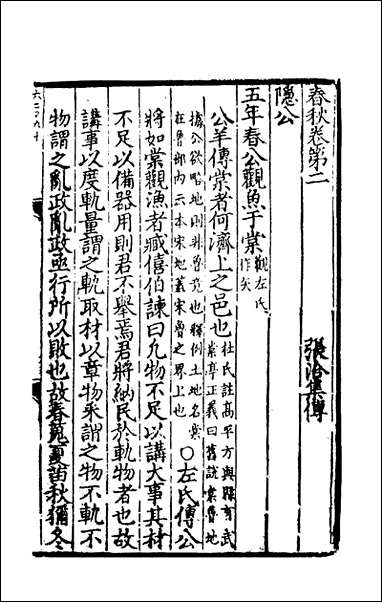 春秋卷第二
張洽集傳
隱公
五年春公觀魚于棠
觀左氏
作矢
公羊傳棠者何濟上之邑也
杜氏註高平方與縣有武
棠亭正義曰舊説棠魯地
據公欲略地則非魯竟也釋例土地名棠
在魯部内云本宋地蓋宋魯之界上也
○左氏傳公
將如棠觀漁者臧僖伯諫曰凡物不足以講大事其材
不足以備器用則君不舉焉君將納民於軌物者也故
講事以度軌量謂之軌取材以章物采謂之物不軌不
物謂之亂政亂政亟行所以敗也故春蒐夏苗秋獮冬